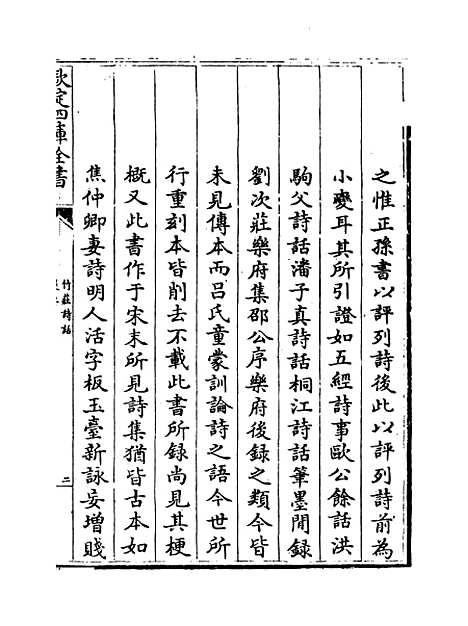 之惟正孫書以評列詩後此以評列詩前為
小變耳其所引證如五經詩事歐公餘話洪
駒父詩話潘子真詩話桐江詩話筆墨閒録
劉次莊樂府集邵公序樂府後録之類今皆
未見傳本而吕氏童蒙訓論詩之語今世所
行重刻本皆削去不載此書所録尚見其梗
概又此書作于宋末所見詩集猶皆古本如
焦仲卿妻詩明人活字板玉臺新詠妄增賤
欽定四庫全書
竹莊詩話
提要
二